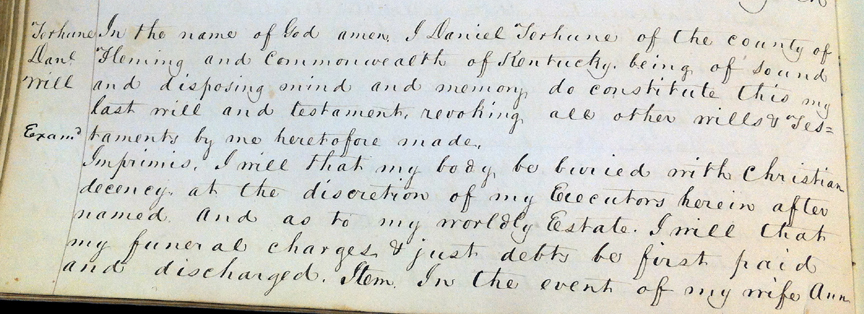 Terhune In the name of God amen, I Daniel Terhune of the county of
Danl Fleming and Commonwealth of Kentucky. being of sound
Will and disposing mind and memory, do constitute this my
last will and testament, revoking all other wills & Tes=
Examd taments by me heretofore made.
Imprimis. I will that my body, be buried with Christian
decency. at the discretion of my Executors herein after
named. And as to my worldly Estate. I will that
my funeral charges & just debts be first paid
and discharged. Item. In the event of my wife Ann